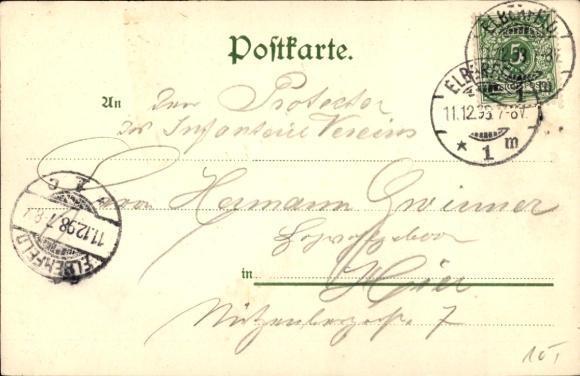 Postkarte.
An Den Protector
des Infanterie Vereins
Herrn Hermann Gwinner
Hochwohlgeboren
in Hier
Nützenbergerstr. 7
ELBERFELD
5
ELBERFELD
11.12.98.7-8V.
* 1 m
ELBERFELD
11.12.98.7-8V
10,-